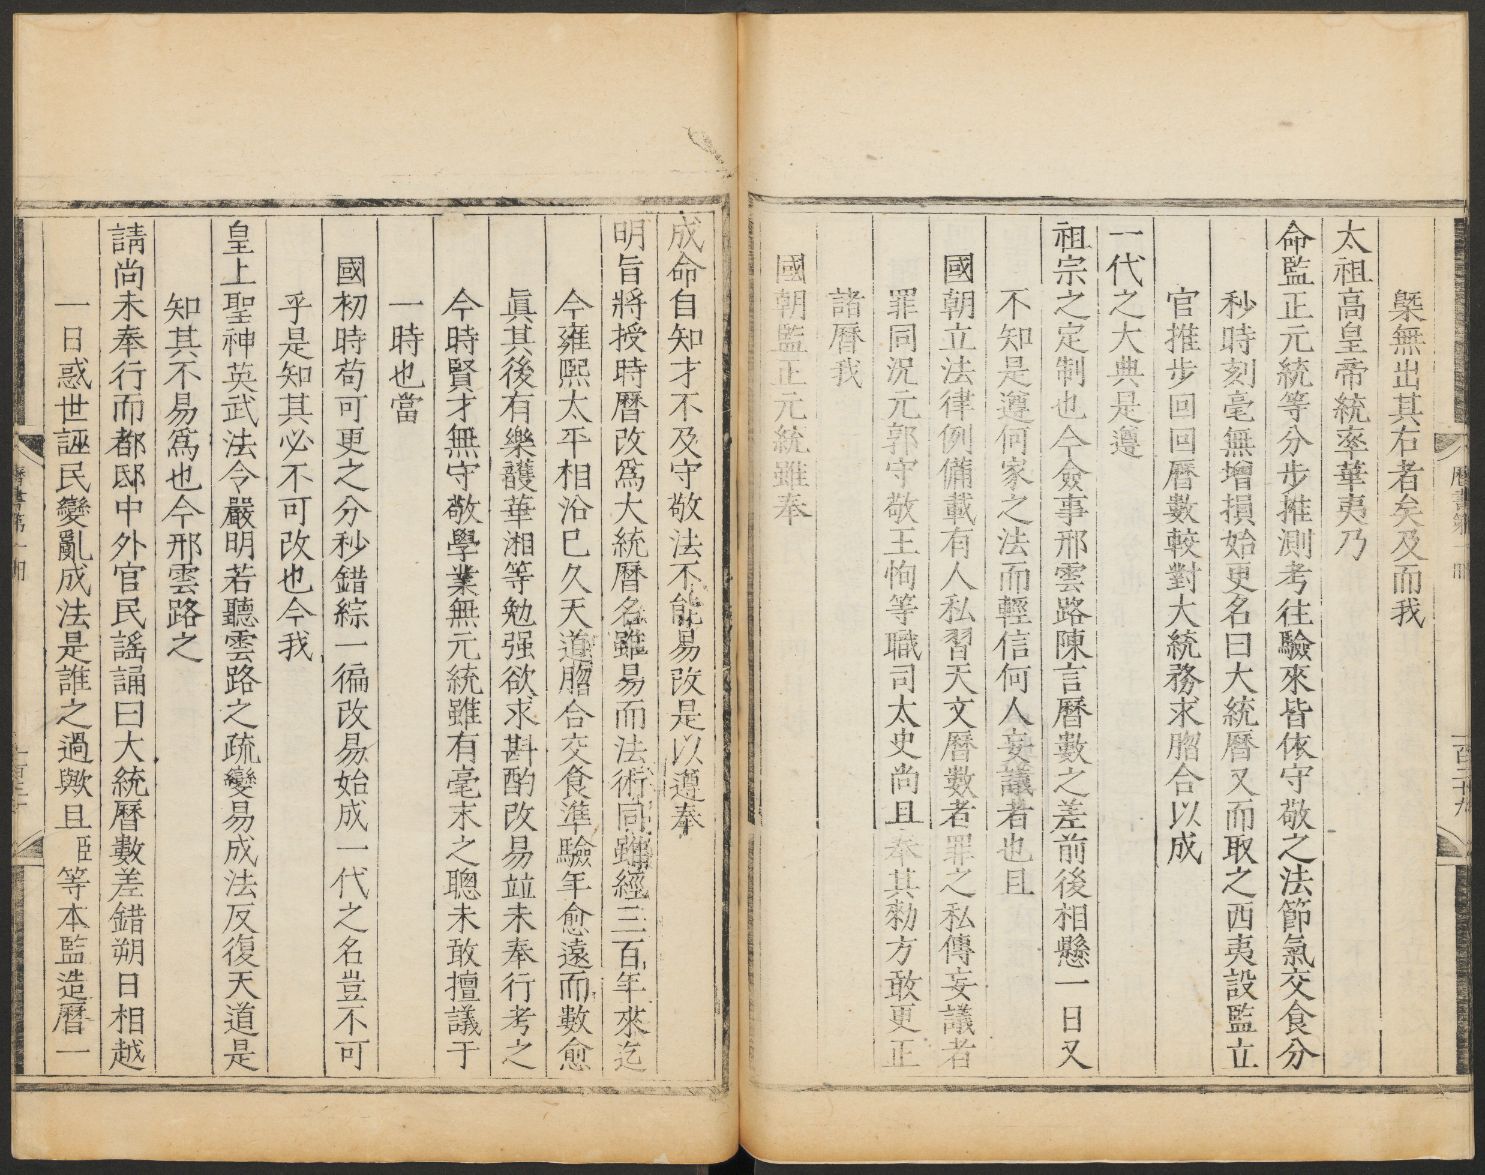 槩無出其右者矣及而我
太祖高皇帝統率華夷乃
命監正元統等分步推測考往驗來皆依守敬之法節氣交食分
秒時刻毫無增損始更名曰大統曆又而取之西夷設監立
官推步回回曆數較對大統務求脗合以成
一代之大典是遵
祖宗之定制也今僉事邢雲路陳言曆數之差前後相懸一日又
不知是遵何家之法而輕信何人妄議者也且
國朝立法律例備載有人私習天文曆數者罪之私傳妄議者
罪同況元郭守敬王恂等職司太史尚且奉其勑方敢更正
諸曆我
國朝監正元統雖奉
成命自知才不及守敬法不能易改是以遵奉
明旨將授時曆改爲大統曆名雖易而法術同雖經三百年來迄
今雍熙太平相沿已久天道脗合交食準驗年愈遠而數愈
眞其後有樂頀華湘等勉强欲求斟酌改易竝未奉行考之
今時賢才無守敬學業無元統雖有毫末之聰未敢擅議于
一時也當
國初時苟可更之分秒錯綜一徧改易始成一代之名豈不可
乎是知其必不可改也今我
皇上聖神英武法令嚴明若聽雲路之疏變易成法反復天道是
知其不易爲也今邢雲路之
請尚未奉行而都邸中外官民謡誦曰大統曆數差錯朔日相越
一日惑世誣民變亂成法是誰之過歟且臣等本監造曆一